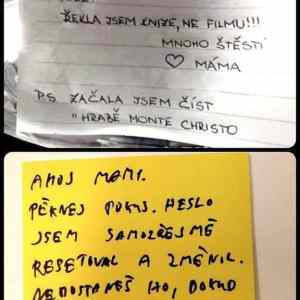 ŘEKLA JSEM KNIZE, NE FILMU!!!
MNOHO ŠTĚSTÍ
♡ MÁMA
PS ZAČALA JSEM ČÍST
"HRABĚ MONTE CHRISTO
AHOJ MAMI.
PĚKNEJ POKUS. HESLO
JSEM SAMOZŘEJMĚ
RESETOVAL A ZMĚNIL.
NEDOSTANEŠ HO, DOKUD